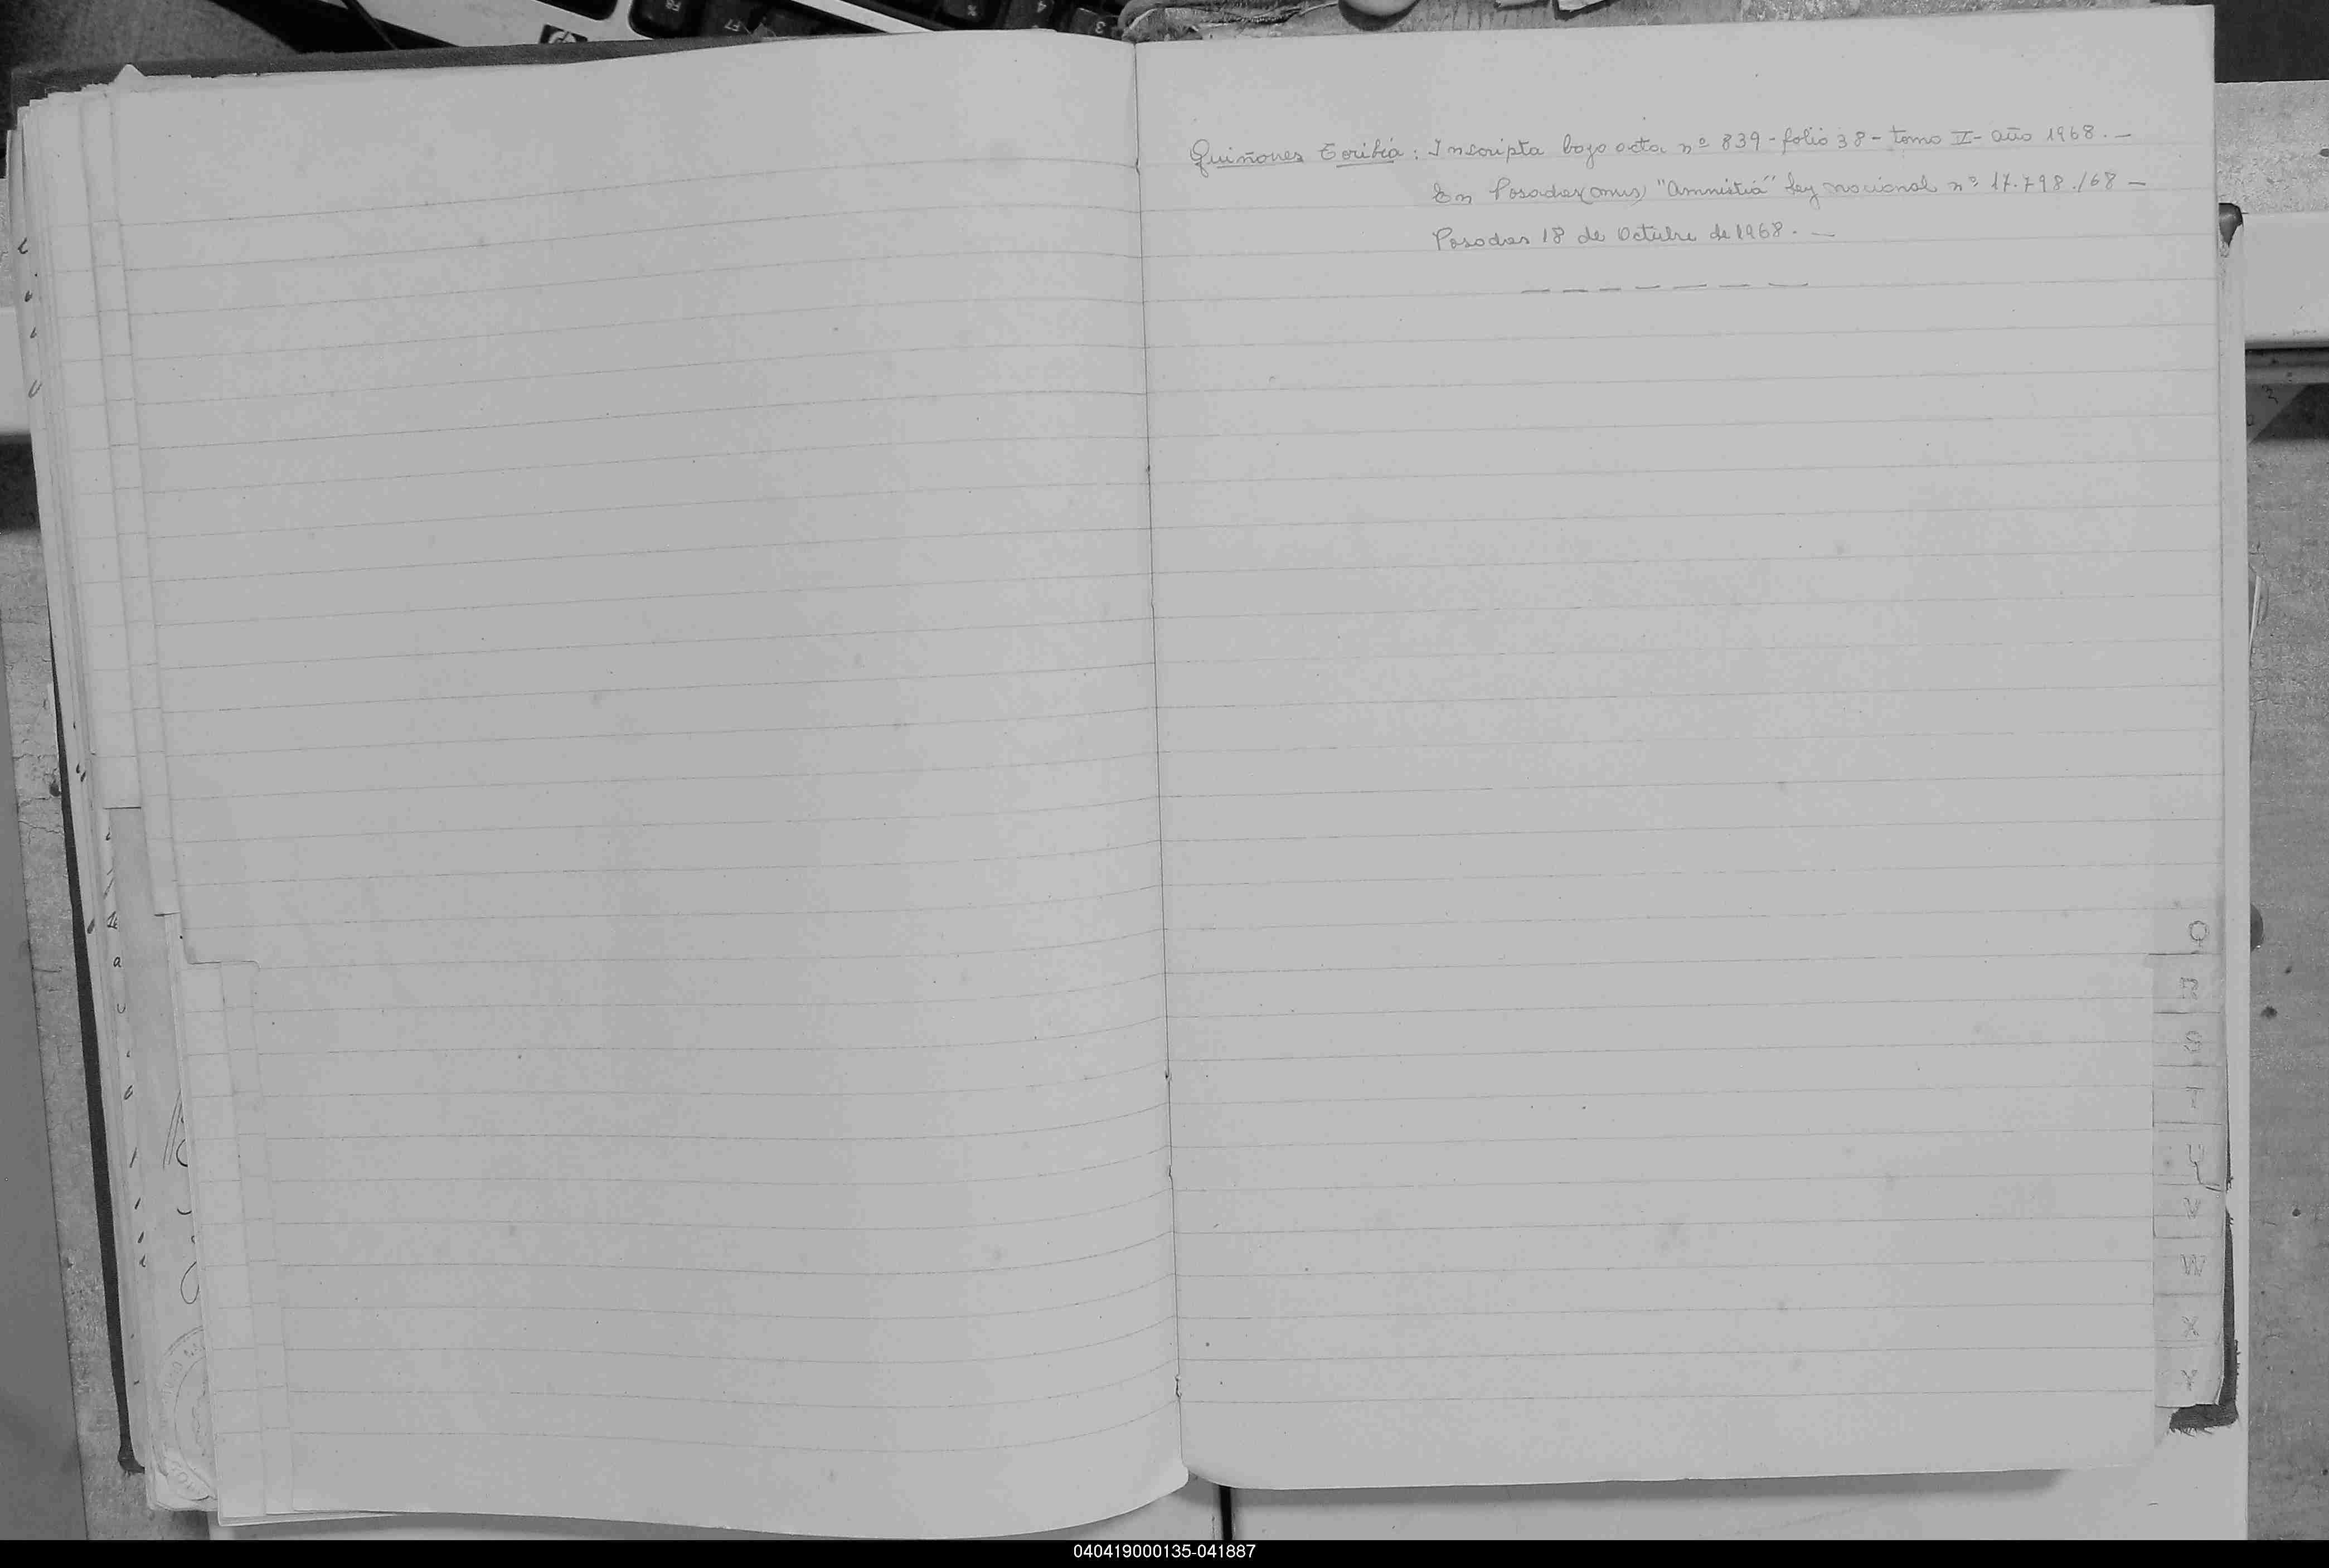 Quiñones Toribia: Inscripta bajo acta nº 839 - folio 38 - tomo I - año 1968. —
En Posadas (mns) "Amnistia" ley nacional nº 17.798./68 —
Posadas 18 de Octubre de 1968. —
Q
R
S
T
U
V
W
X
Y
040419000135-041887